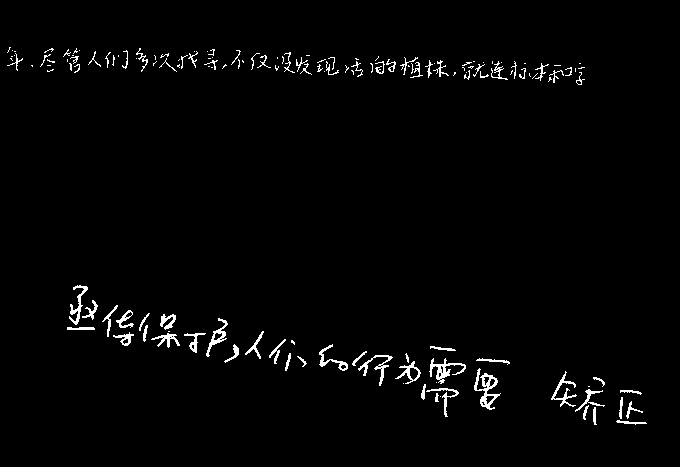 年.尽管人们多次找寻,不仅没发现活的植株,就连标本和字
亟待保护,人们的行为需要 矫正